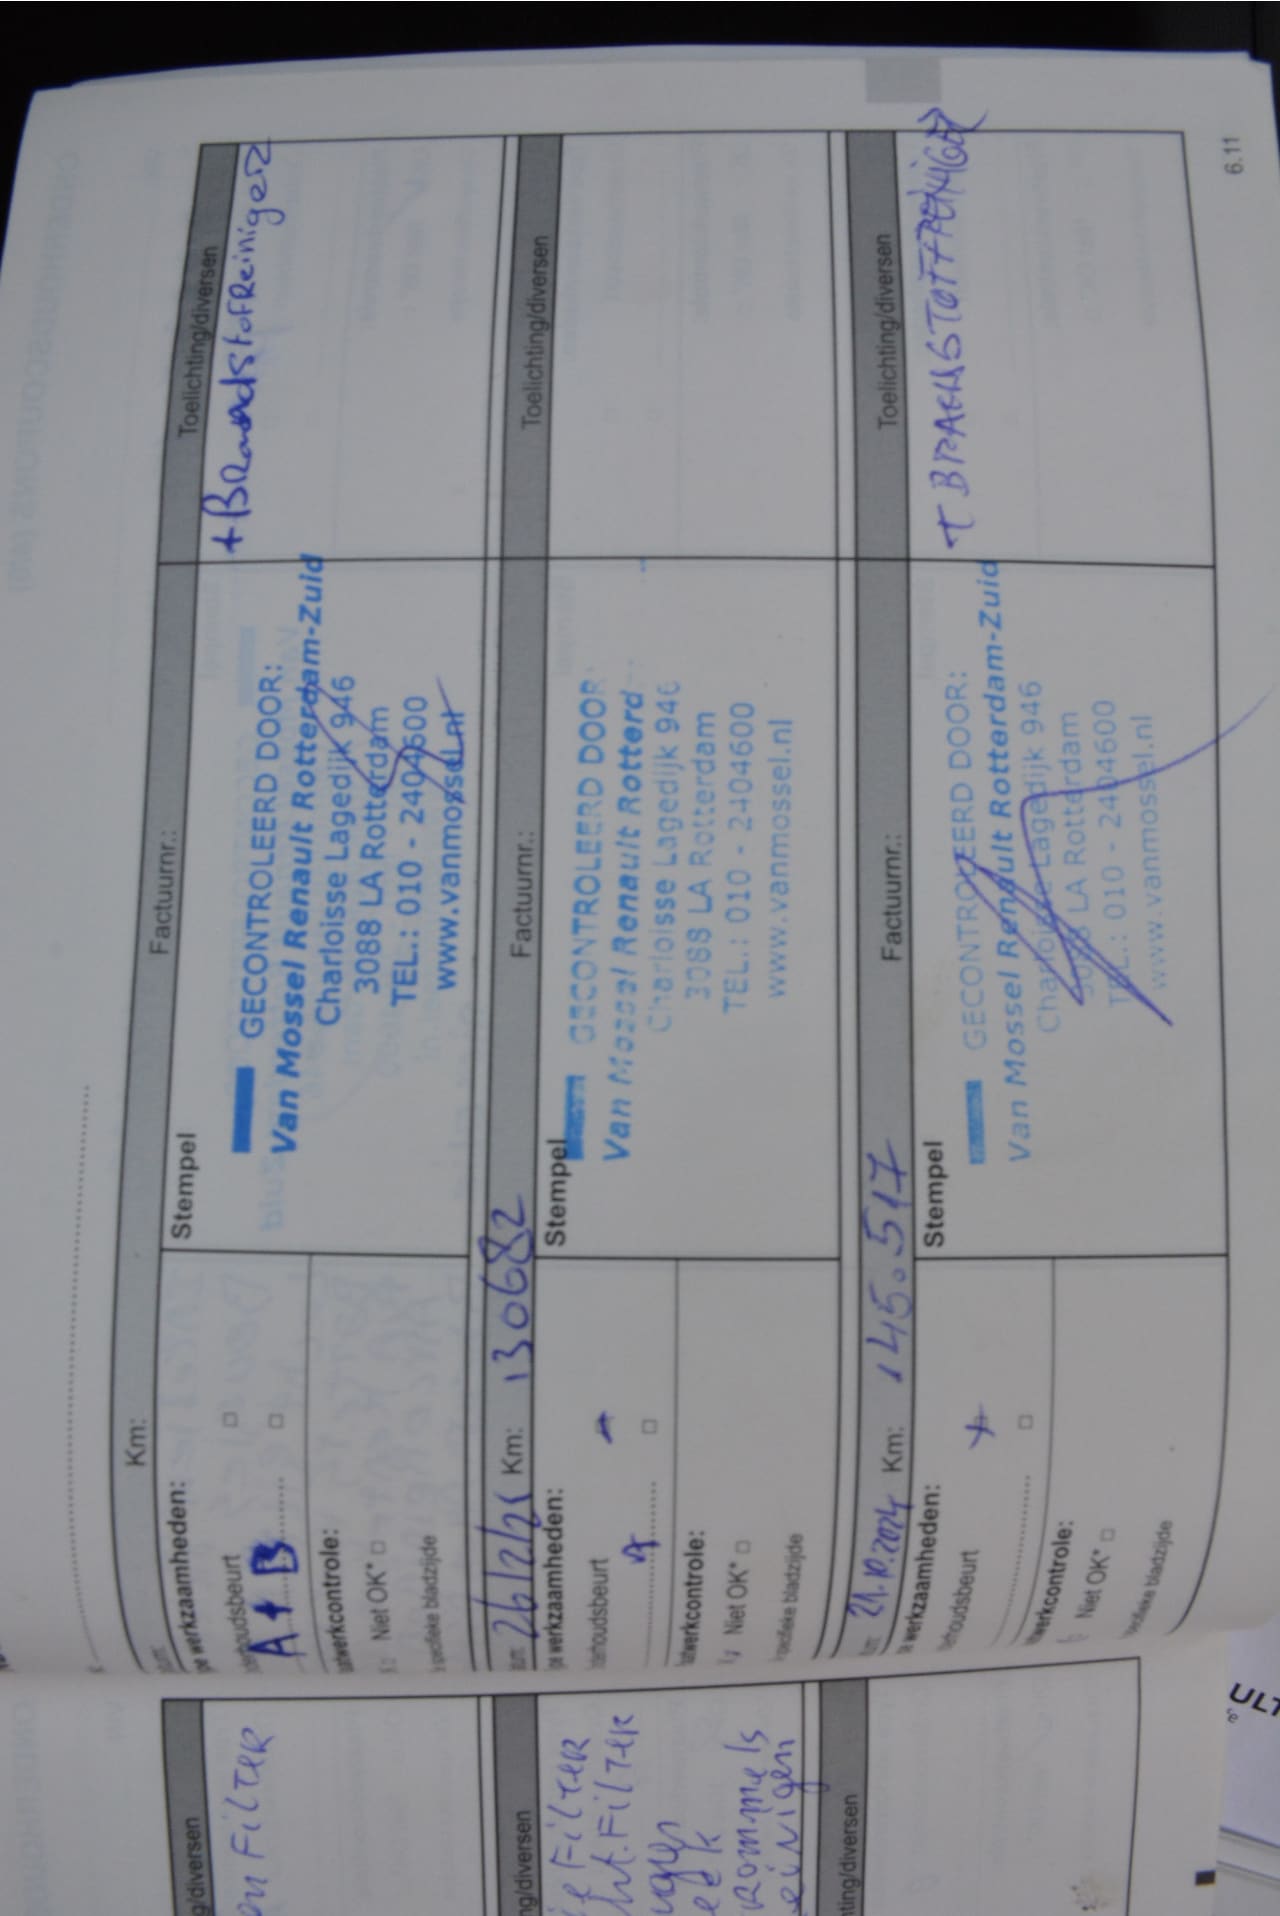 Km:
Factuurnr.:
Toelichting/diversen
werkzaamheden:
Stempel
+ BRandstofReiniger
A + B
GECONTROLEERD DOOR:
Van Mossel Renault Rotterdam-Zuid
Charloisse Lagedijk 946
3088 LA Rotterdam
TEL.: 010 - 2404600
www.vanmossel.nl
Niet OK* □
Km: 130682
Factuurnr.:
Toelichting/diversen
werkzaamheden:
Stempel
A
GECONTROLEERD DOOR
Van Mossel Renault Rotterd
Charloisse Lagedijk 946
3088 LA Rotterdam
TEL.: 010 - 2404600
www.vanmossel.nl
Niet OK* □
21.10.2024 Km: 145.517
Factuurnr.:
Toelichting/diversen
werkzaamheden:
Stempel
GECONTROLEERD DOOR:
Van Mossel Renault Rotterdam-Zuid
Charloisse Lagedijk 946
3088 LA Rotterdam
TEL.: 010 - 2404600
www.vanmossel.nl
Niet OK* □
6.11
g/diversen
en FilTeR
ng/diversen
FilTeR
ht. FilTeR
Rommels
einigen
hting/diversen
ULT